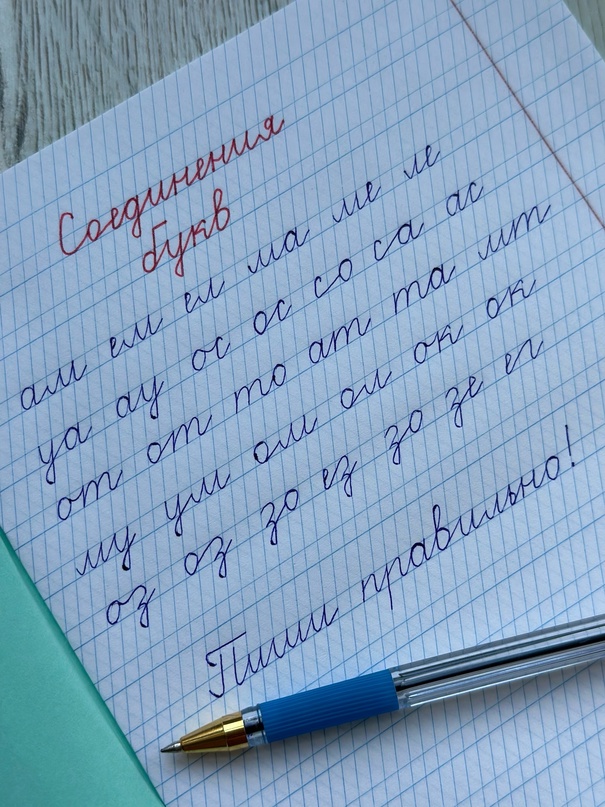 Соединения
букв
ам ем ел ма ме ле
уа ау ос ос со са ас
от от то ат та
му ум ом ол ок ок
оз оз зо ез зо зе
Пиши правильно!